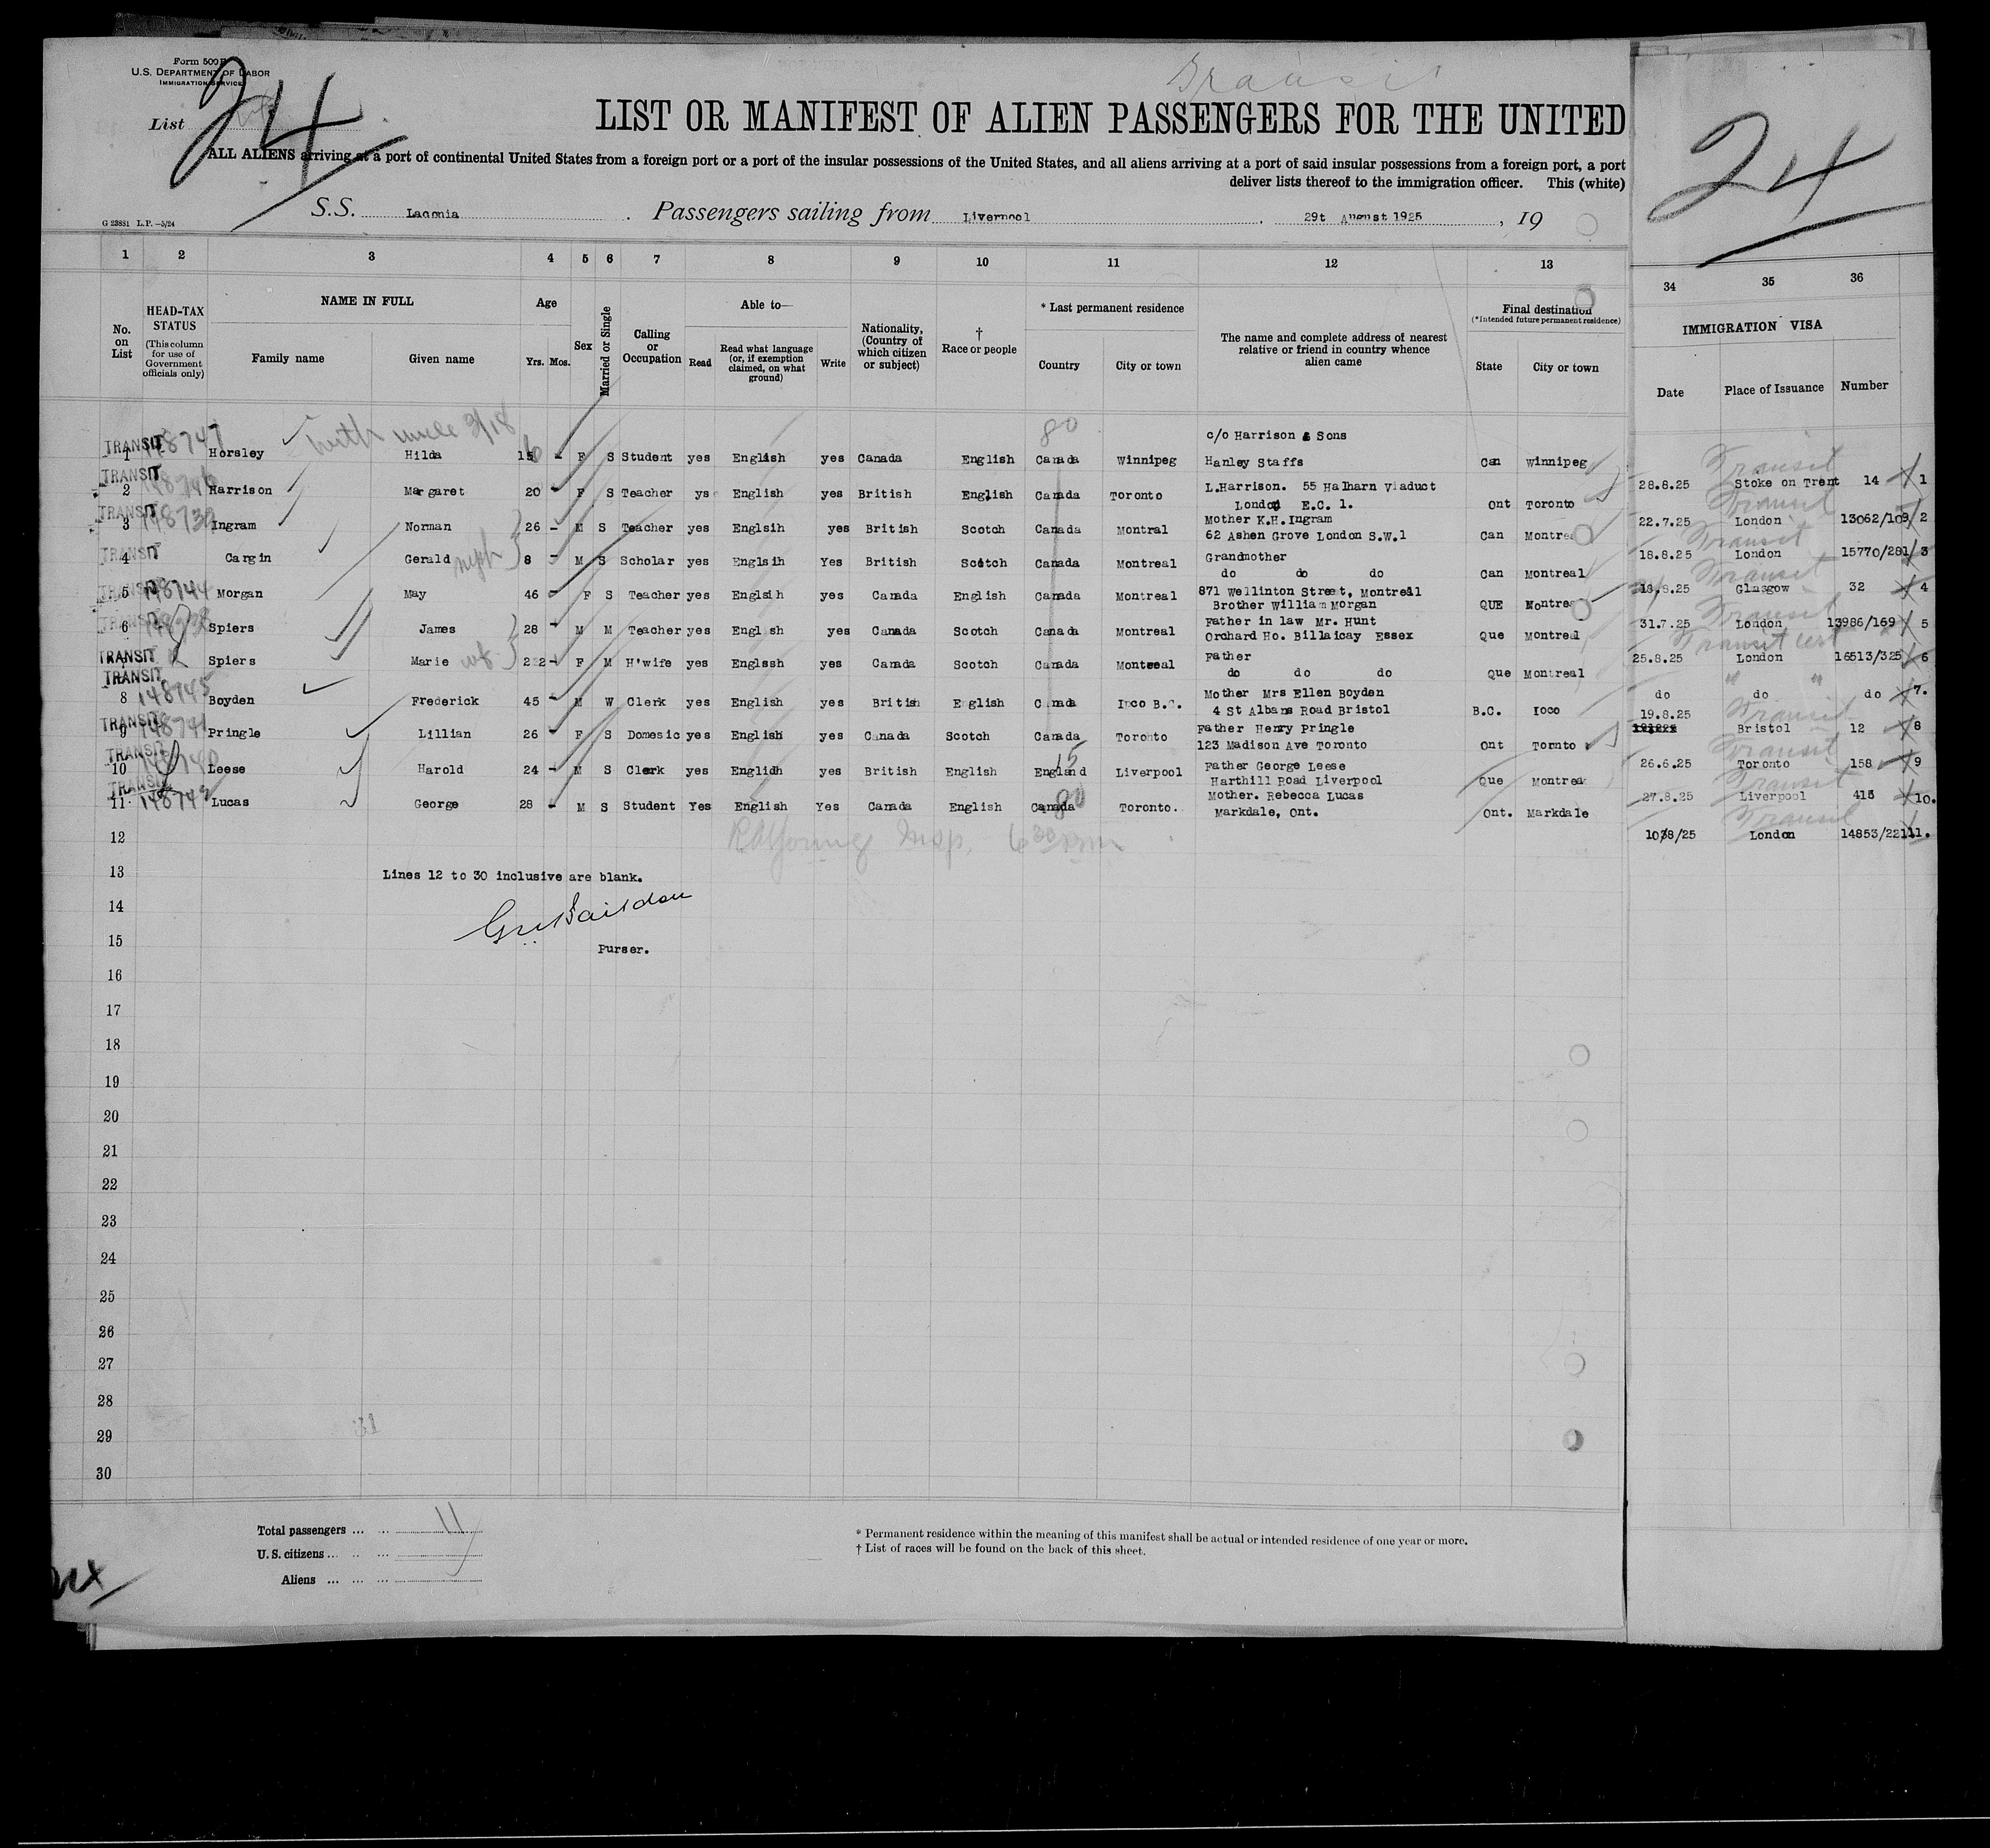 Form 500 B
U.S. DEPARTMENT OF LABOR
IMMIGRATION SERVICE
List
24
Transit
24
LIST OR MANIFEST OF ALIEN PASSENGERS FOR THE UNITED
ALL ALIENS arriving at a port of continental United States from a foreign port or a port of the insular possessions of the United States, and all aliens arriving at a port of said insular possessions from a foreign port, a port
deliver lists thereof to the immigration officer. This (white)
S.S. Laconia . Passengers sailing from Liverpool . 29t August 1925 , 19
G 23881 L.P.—5/24
1 2 3 4 5 6 7 8 9 10 11 12 13 34 35 36
No. on List
HEAD-TAX STATUS (This column for use of Government officials only)
NAME IN FULL
Family name Given name
Age
Yrs. Mos.
Sex
Married or Single
Calling or Occupation
Able to—
Read Read what language (or, if exemption claimed, on what ground) Write
Nationality, (Country of which citizen or subject)
† Race or people
* Last permanent residence
Country City or town
The name and complete address of nearest relative or friend in country whence alien came
Final destination
(*Intended future permanent residence)
State City or town
IMMIGRATION VISA
Date Place of Issuance Number
with uncle 2/18
80
c/o Harrison & Sons
TRANSIT 148747
1 Horsley Hilda 15 - F S Student yes English yes Canada English Canada Winnipeg Hanley Staffs Can Winnipeg
Transit
28.8.25 Stoke on Trent 14 1
TRANSIT 148746
2 Harrison Margaret 20 - F S Teacher ys English yes British English Canada Toronto L.Harrison. 55 Halharn Viaduct
London E.C. 1. Ont Toronto
Transit
22.7.25 London 13062/109 2
TRANSIT 148739
3 Ingram Norman 26 - M S Teacher yes Englsih yes British Scotch Canada Montral Mother K.H.Ingram
62 Ashen Grove London S.W.1 Can Montre
Transit
18.8.25 London 15770/281 3
TRANSIT
4 Cargin Gerald neph 8 M S Scholar yes Englsih Yes British Scotch Canada Montreal Grandmother
do do do Can Montreal
Transit
18.8.25 Glasgow 32 4
TRANSIT 148744
5 Morgan May 46 - F S Teacher yes Englsih yes Canada English Canada Montreal 871 Wellinton Street, Montreal
Brother William Morgan QUE Montre
Transit
31.7.25 London 13986/169 5
TRANSIT 148738
6 Spiers James 28 - M M Teacher yes English yes Canada Scotch Canada Montreal Father in law Mr. Hunt
Orchard Ho. Billaicay Essex Que Montreal
Transit cert
25.8.25 London 16513/325 6
TRANSIT
7 Spiers Marie wf 22 - F M H'wife yes Englssh yes Canada Scotch Canada Montreal Father
do do do Que Montreal
" "
do do do 7.
TRANSIT 148745
8 Boyden Frederick 45 - M W Clerk yes English yes British English Canada Ioco B.C. Mother Mrs Ellen Boyden
4 St Albans Road Bristol B.C. Ioco
Transit
19.8.25 Bristol 12 8
TRANSIT 148741
9 Pringle Lillian 26 - F S Domesic yes English yes Canada Scotch Canada Toronto Father Henry Pringle
123 Madison Ave Toronto Ont Tornto
Transit
26.6.25 Toronto 158 9
TRANSIT 148740
15
10 Leese Harold 24 - M S Clerk yes Englidh yes British English England Liverpool Father George Leese
Harthill Road Liverpool Que Montrea
Transit
27.8.25 Liverpool 415 10.
TRANSIT 148742
80
11. Lucas George 28 - M S Student Yes English Yes Canada English Canada Toronto. Mother. Rebecca Lucas
Markdale, Ont. Ont. Markdale
Transit
10/8/25 London 14853/221 11.
12
13 Lines 12 to 30 inclusive are blank.
14
15 Purser.
16
17
18
19
20
21
22
23
24
25
26
27
28
29
31
30
Total passengers ... ... 11
U. S. citizens ... ... ...
Aliens ... ... ...
* Permanent residence within the meaning of this manifest shall be actual or intended residence of one year or more.
† List of races will be found on the back of this sheet.